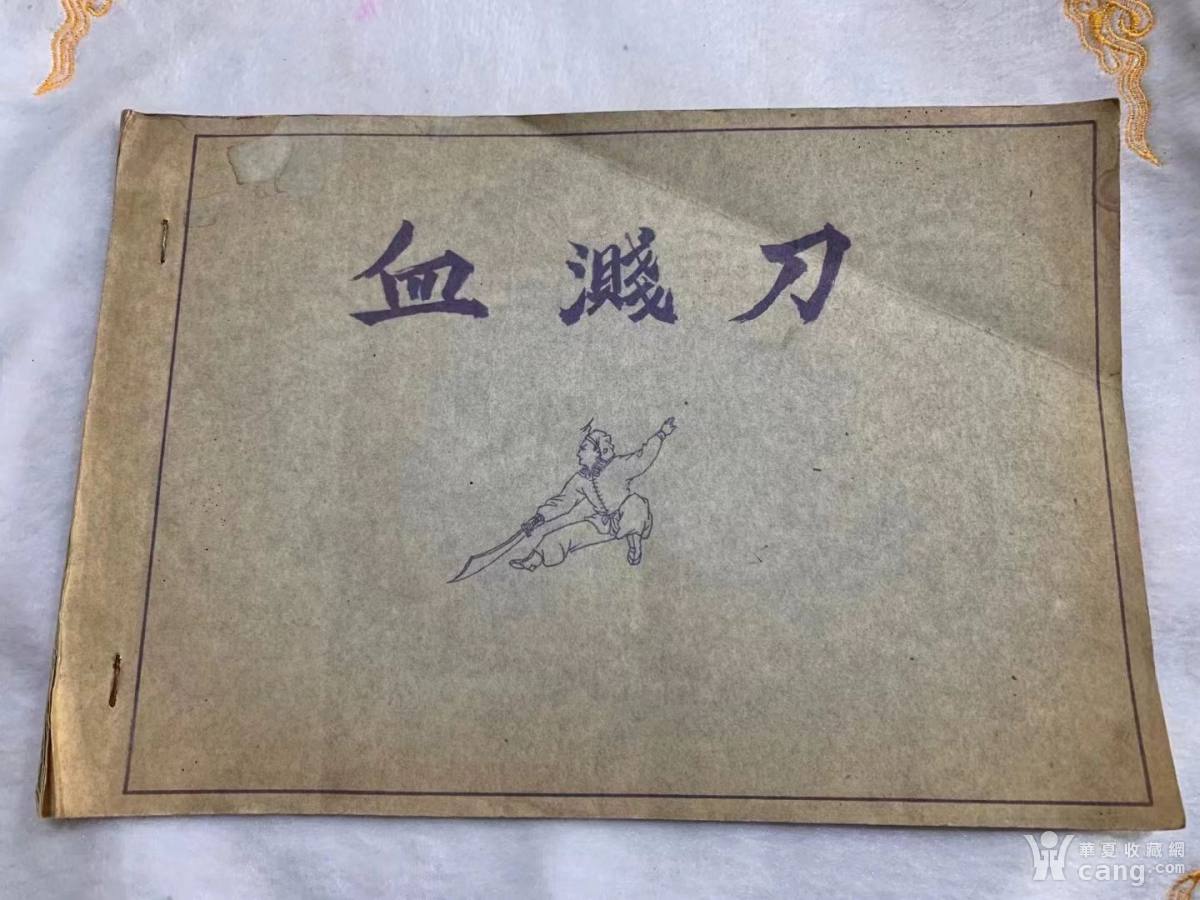 血濺刀
華夏收藏網
cang.com